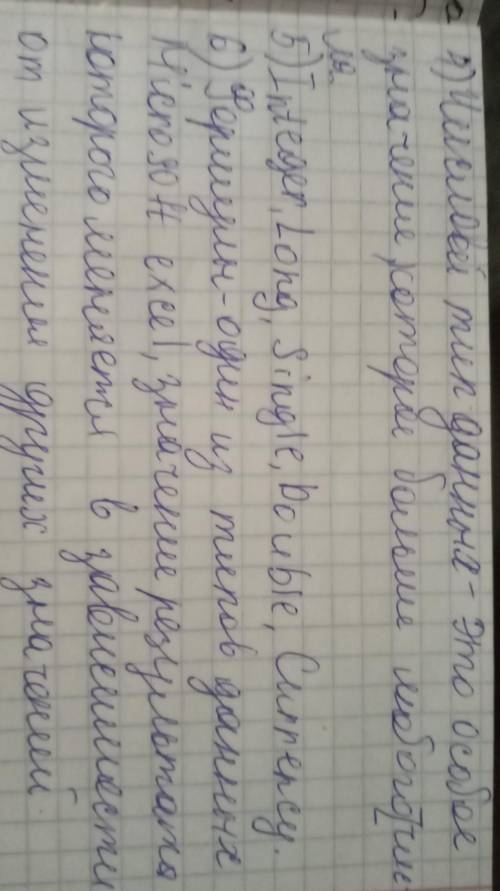 4) Числовой тип данных - это особое
значение, которое больше любого чис
ла.
5) Integer, Long, Single, Double, Currency.
6) Формулы - один из типов данных
Microsoft excel, значение результата
которого меняется в зависимости
от изменения других значений.